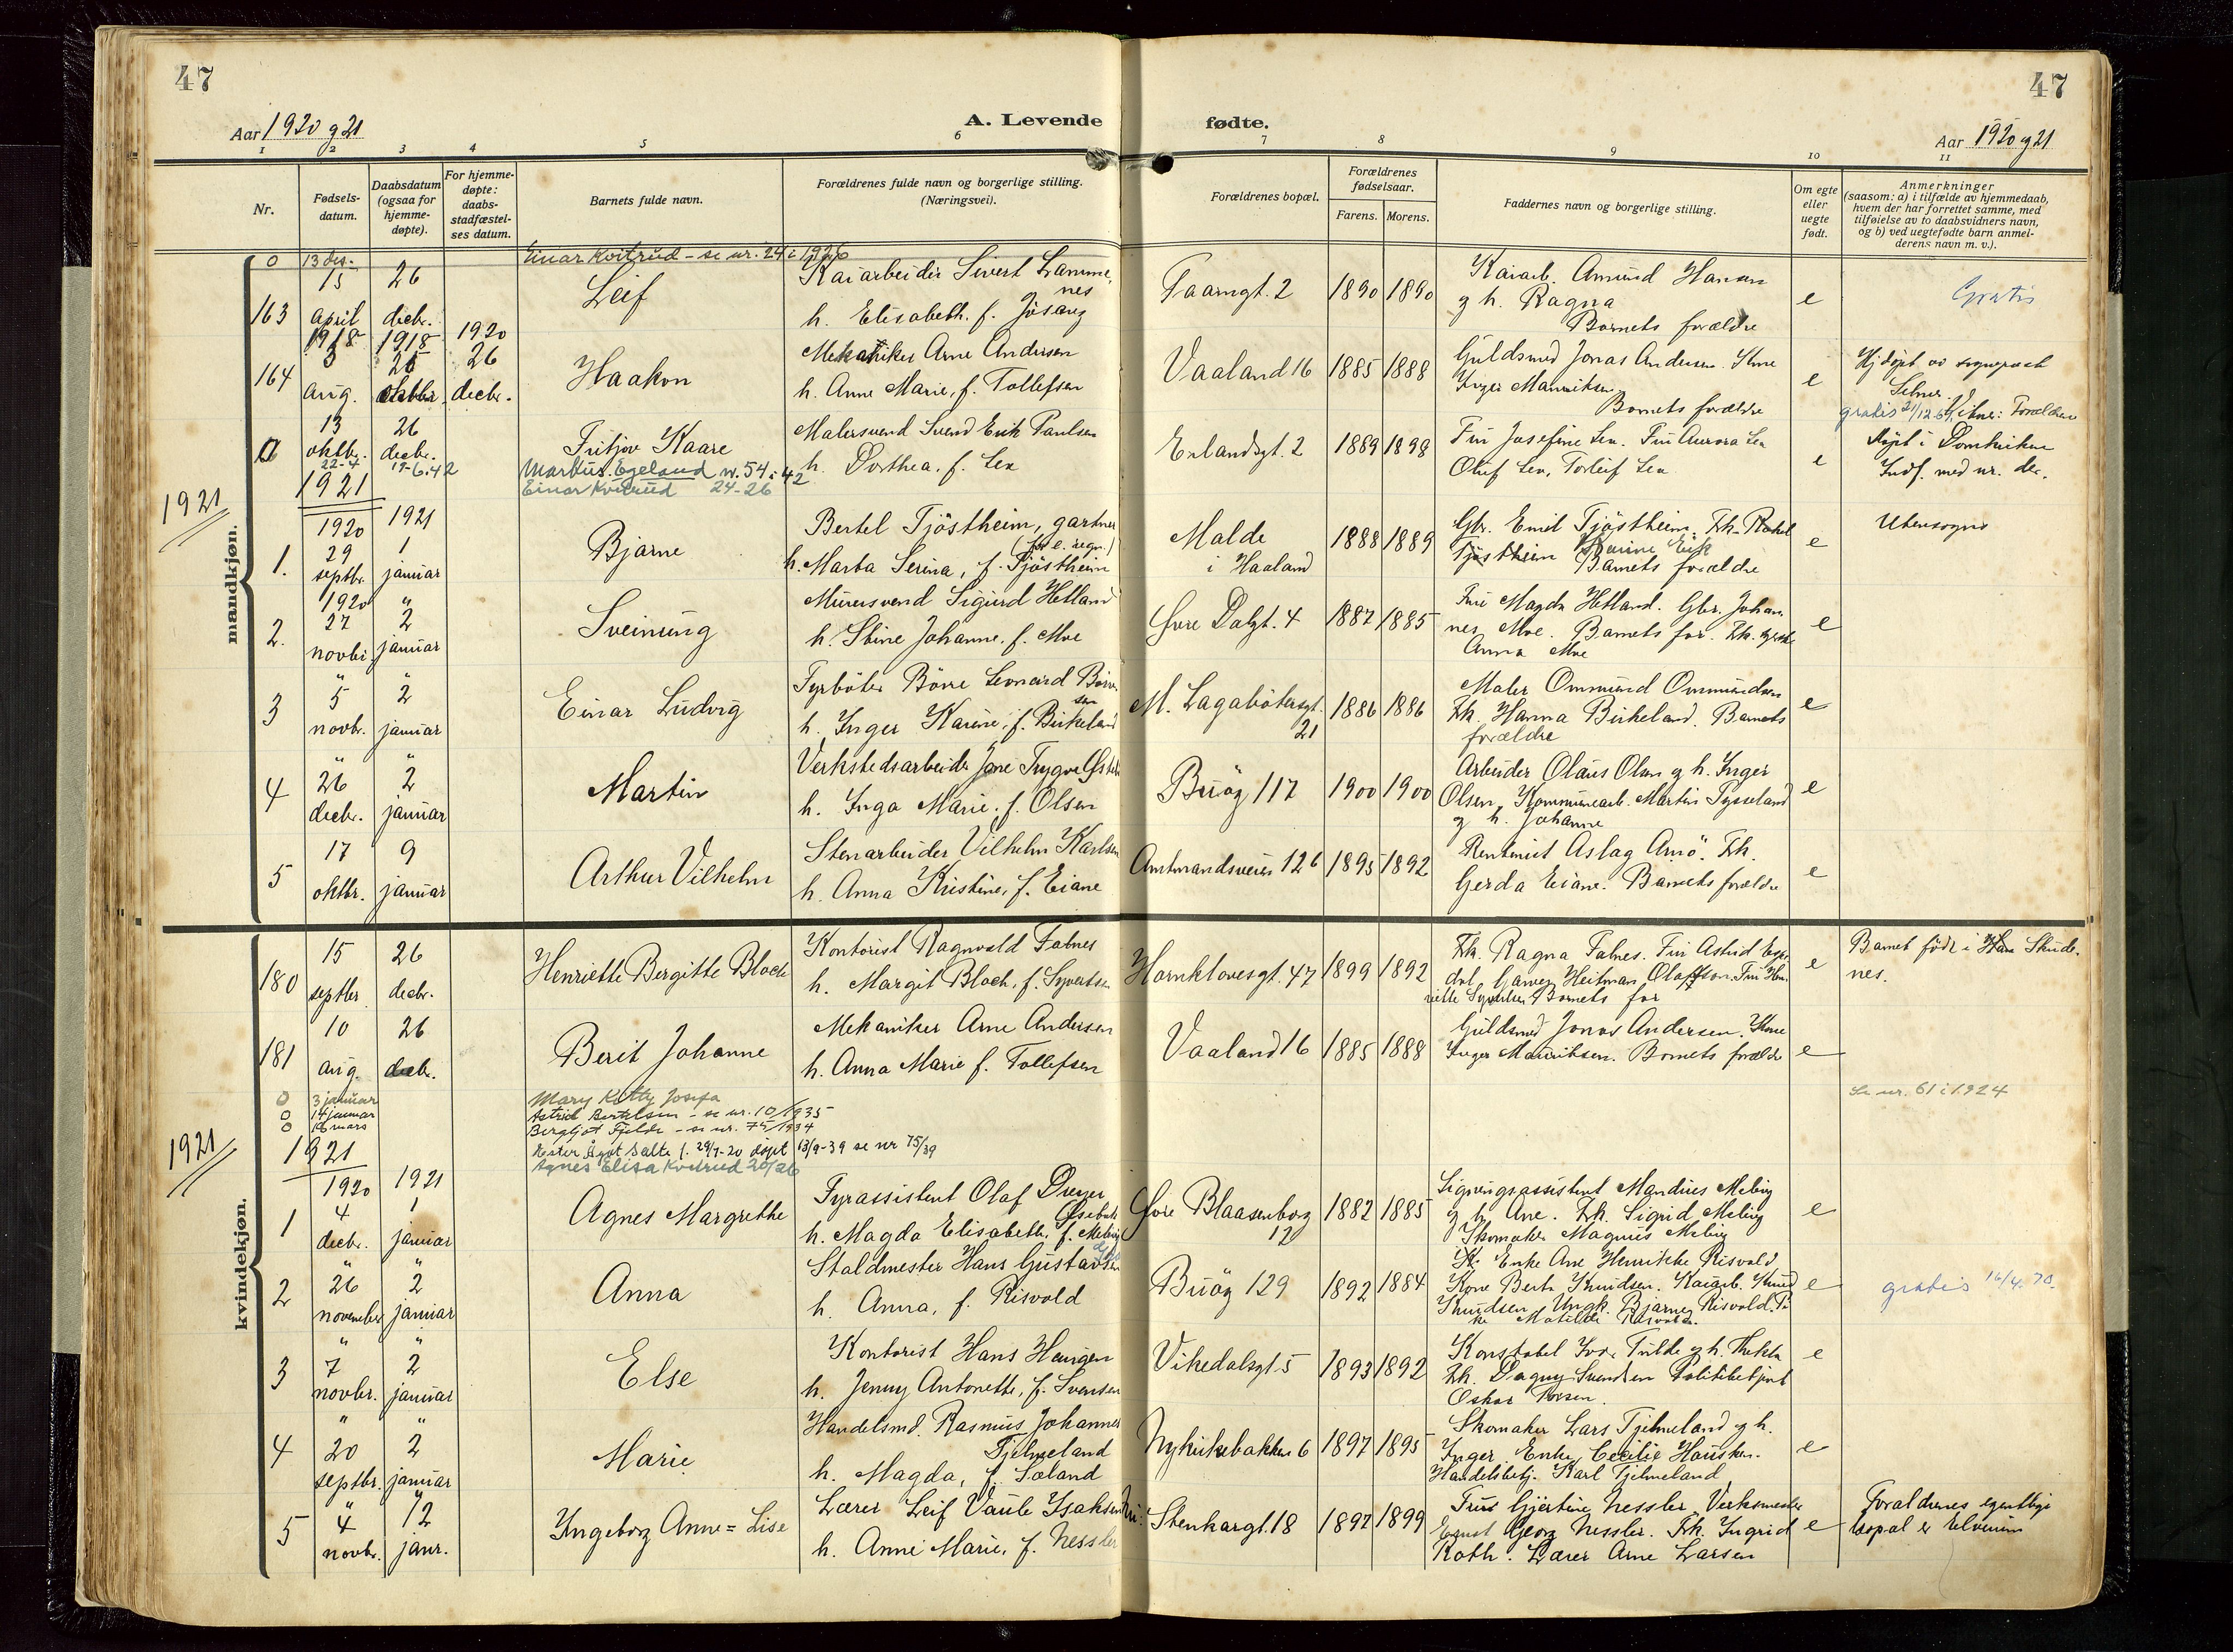 47
47
Aar 1920 og 21
A. Levende
fødte.
Aar 1920 og 21
1 2 3 4 5 6 7 8 9 10 11
Nr.
Fødsels-
datum.
Daabsdatum
(ogsaa for
hjemme-
døpte).
For hjemme-
døpte:
daabs-
stadfæstel-
ses datum.
Barnets fulde navn.
Forældrenes fulde navn og borgerlige stilling.
(Næringsvei).
Forældrenes bopæl.
Forældrenes
fødselsaar.
Farens. Morens.
Faddernes navn og borgerlige stilling.
Om egte
eller
uegte
født.
Anmerkninger
(saasom: a) i tilfælde av hjemmedaab,
hvem der har forrettet samme, med
tilføielse av to daabsvidners navn,
og b) ved uegtefødte barn anmel-
derens navn m. v.).
mandkjøn.
0 13 des. Einar Kvitrud - se nr. 24 i 1926
163
15
april
1918
26
decbr.
1918
Leif
Kaiarbeider Sivert
h. Elisabeth. f. Jösang
Taarngt. 2
1890 1890
Kaiarb. Amund Hansen
og h. Ragna
Barnets forældre
e
Gratis
164
3
aug.
oktbr.
1920
26
decbr.
Haakon
Mekaniker Arne Andersen
h. Anne Marie, f. Tollefsen
Vaaland 16
1885 1888
Guldsmed Jonas Andersen. Kone
Inger Mauritsen
Barnets forældre
e
Hj.døpt av sogneprest
gratis
0
13
oktbr.
26
decbr.
Fritjov Kaare
Malersvend Svend Erik Paulsen
h. Dorthea, f. Lea
Erlandsgt. 2
1889 1898
Fru Josefine Lea. Fru Aurora Lea
Oluf Lea, Torleif Lea
e
Døpt i Domkirken
Indf. med nr. der.
22-4 19-6.42 Markus Egeland nr. 54 i 42
Einar Kvitrud 24-26
1921
1921
1.
1920
29
septbr.
1921
1
januar
Bjarne
Bertel Tjöstheim, gartner
h. Marta Serina, f. Tjöstheim
Malde
i Haaland
1888 1889
Gbr. Emil Tjöstheim. Frk. Rakel
Tjöstheim
Barnets forældre
e
Utensogns
2.
1920
27
novbr
"
2
januar
Sveinung
Murersvend Sigurd Hetland
h. Stine Johanne. f. Moe
Øvre Dalgt. 4
1887 1885
Fru Magda Hetland. Gbr. Johan
nes Moe. Barnets for.
Anna Moe
e
3
"
5
novbr.
"
2
januar
Einar Ludvig
Fyrböter Börre Leonard
h. Inger Karine, f. Birkeland
M. Lagabötersgt.
21
1886 1886
Maler Ommund Ommundsen
Frk. Hanna Birkeland. Barnets
forældre
e
4
"
26
decbr.
"
2
januar
Martin
Verkstedsarbeider Jone Trygve
h. Inga Marie. f. Olsen
Buøy 117
1900 1900
Arbeider Olaus Olsen og h. Inger
Olsen, Kommunearb. Martin Tysseland
og h. Johanne
e
5
17
oktbr.
9
januar
Arthur Vilhelm
Stenarbeider Vilhelm Karlsen
h. Anna Kristine, f. Eiane
Amtmandsveien 126
1895 1892
Rentenist Aslag Amö. Frk.
Gerda Eiane. Barnets forældre
e
kvindekjøn.
180
15
septbr
26
decbr.
Henriette Bergitte Bloch
Kontorist Ragnvald Falnes
h. Margit Bloch, f. Syvertsen
Hornklovesgt. 47
1899 1892
Frk. Ragna Falnes. Fru Astrid
Garver Heitman Olafsson. Fru Hen
riette Syvertsen. Barnets for
e
Barnet født i Skude-
nes.
181
10
aug.
26
decbr.
Berit Johanne
Mekaniker Arne Andersen
h. Anna Marie f. Tollefsen
Vaaland 16
1885 1888
Guldsmed Jonas Andersen. Kone
Inger Mauritsen. Barnets forældre
e
0 3 januar Mary Kitty Josefa
Se nr. 61 i 1924
0 14 januar Astrid Bertelsen - se nr. 10/1935
0 16 mars Bergljot Fjelde - se nr. 75/1934
Ester Ågot Salte f. 29/7-20 døpt 13/9-39 se nr 75/39
Agnes Elisa Kvitrud 20/26
1921
1921
1
1920
4
decbr.
1921
1
januar
Agnes Margrethe
Fyrassistent Olaf Dreyer
h. Magda Elisabeth, f. Meling
Øvre Blaasenborg
12
1882 1885
Signingsassistent Mandius Meling
og h. Ane. Frk. Sigrid Meling
Skomaker Magnus Meling
e
2
"
26
november
"
2
januar
Anna
Staldmester Hans Gustavsen
h. Anna, f. Risvold
Buøy 129
1892 1884
Enke Ane Henrikke Risvold
Kone Berta Knudsen. Kaiarb. Knud
Knudsen, Ungk. Bjarne Risvold. Pi
ke Matilde Risvold.
e
gratis 16/4.70.
3
"
7
novbr.
"
2
januar
Else
Kontorist Hans Haugen
h. Jenny Antonette, f. Svensen
Vikedalsgt 5
1893 1892
Konstabel Ivar Tvilde og h. Thekla
Frk. Dagny Svendsen Politibetjent
Oskar
e
4
"
20
septbr.
"
2
januar
Marie
Handelsmd. Rasmus Johannes
Tjelmeland
h. Magda, f. Søland
Nykirkebakken 6
1897 1895
Skomaker Lars Tjelmeland og h.
Inger. Enke Cecilie Hausken.
Handelsbetj. Karl Tjelmeland
e
5
"
4
novbr.
"
12
janr.
Ingeborg Anne=Lise
Lærer Leif Vaule Isaksen
h. Anne Marie, f. Nessler
Stenkargt. 18
1897 1899
Fru Gjertine Nessler Verksmester
Ernst Georg Nessler. Frk. Ingrid
Roth. Lærer Arne Larsen
e
Foraldrenes egentlige
bopæl er Elverum